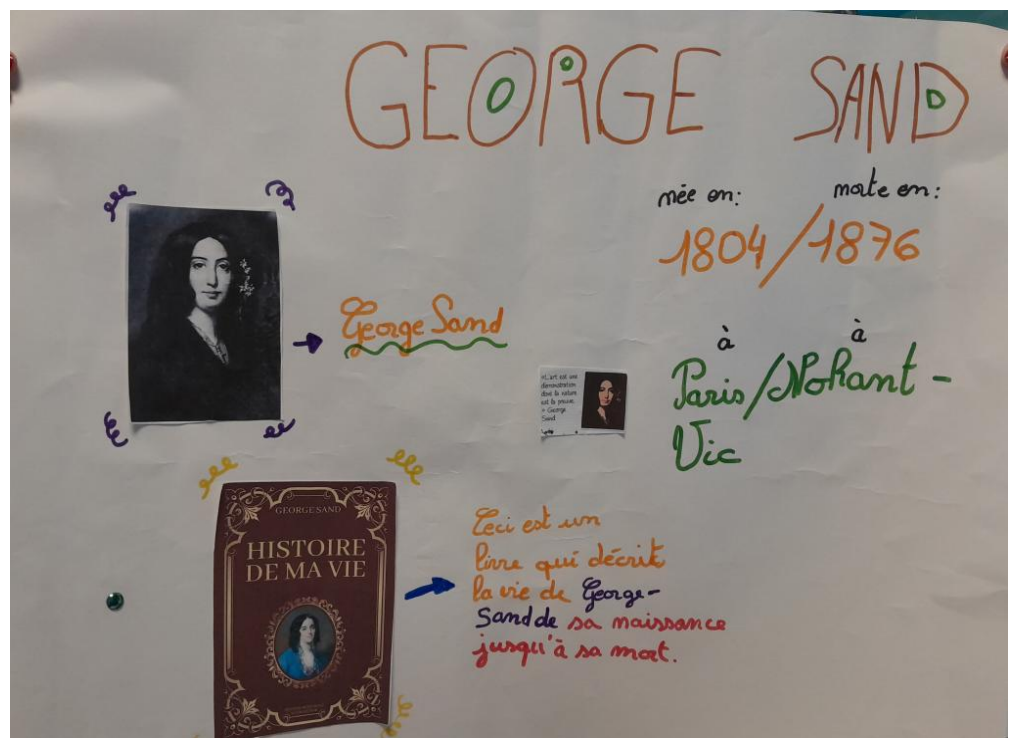 GEORGE SAND
née en: morte en:
1804/1876
à à
Paris/Nohant-
Vic
George Sand
«L'art est une
démonstration
dont la nature
est la preuve.
» George
Sand
GEORGE SAND
HISTOIRE
DE MA VIE
Ceci est un
livre qui décrit
la vie de George-
Sand de sa naissance
jusqu'à sa mort.